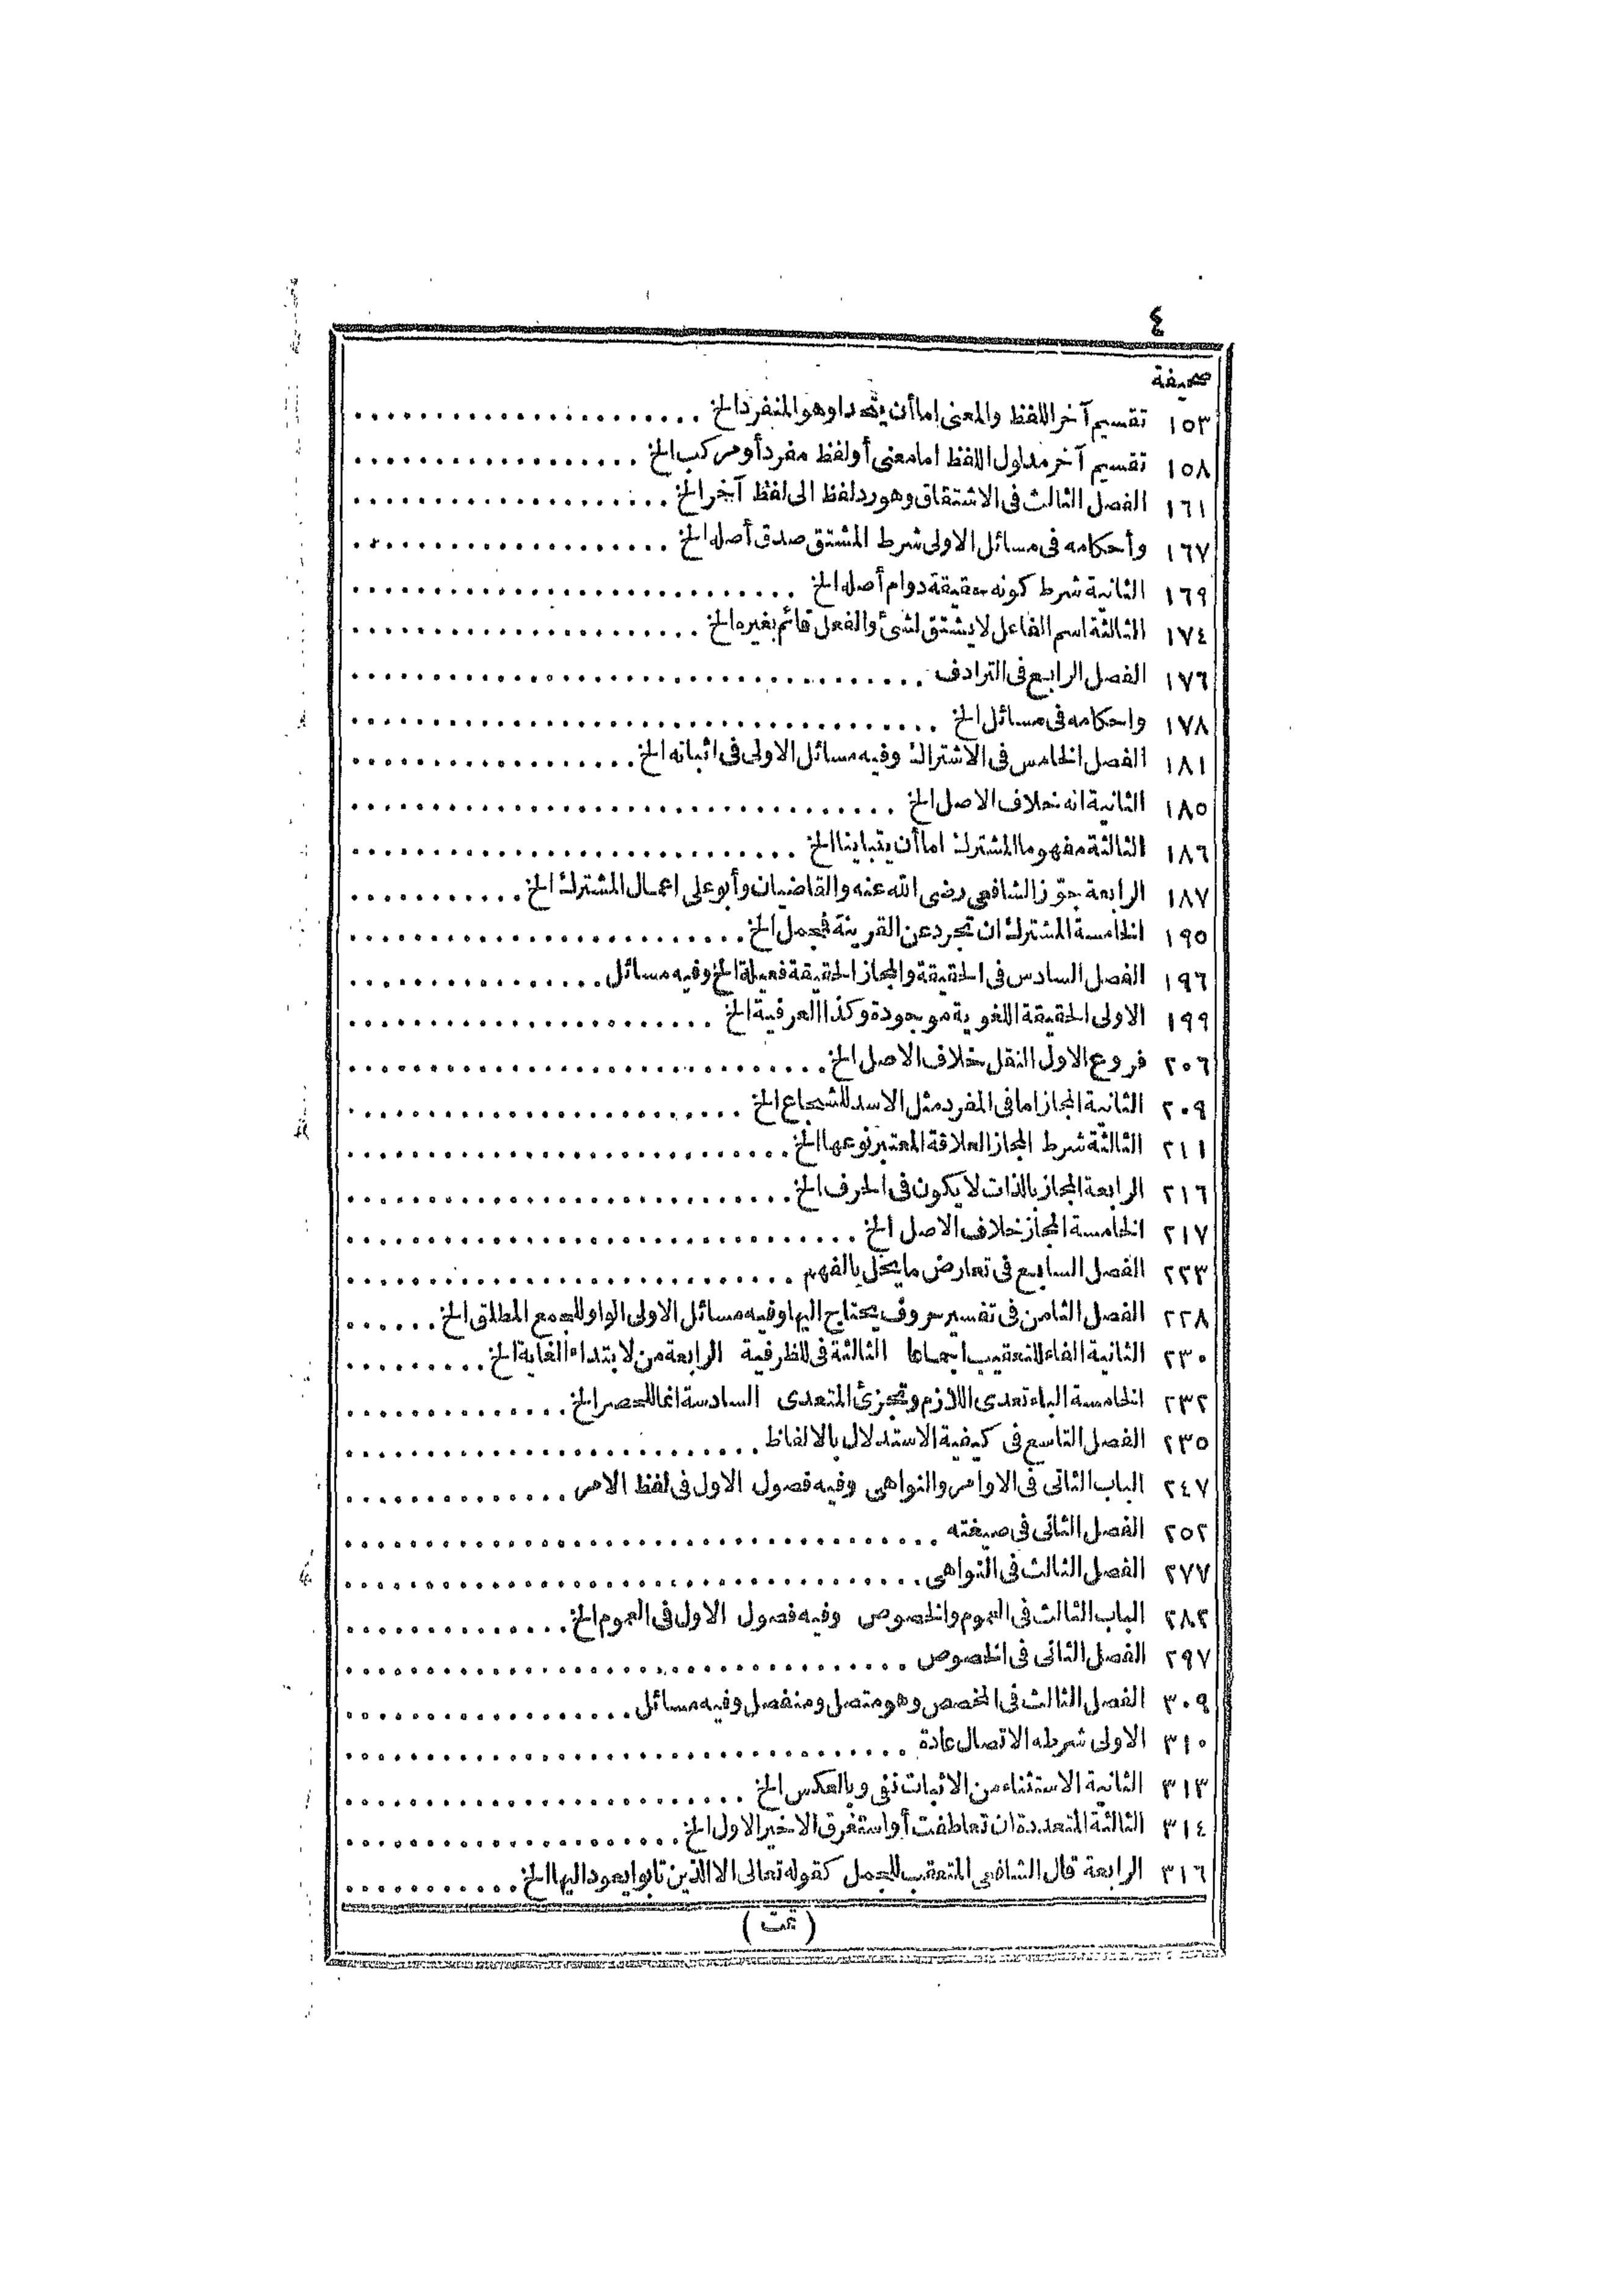 ٤
صحيفة
١٥٣ تقسيم آخر اللفظ والمعنى اما أن يتحدا وهو المنفرد الخ
١٥٨ تقسيم آخر مدلول اللفظ اما معنى أو لفظ مفرد أو مركب الخ
١٦١ الفصل الثالث فى الاشتقاق وهو رد لفظ الى لفظ آخر الخ
١٦٧ وأحكامه فى مسائل الاولى شرط المشتق صدق أصله الخ
١٦٩ الثانية شرط كونه حقيقة دوام أصله الخ
١٧٤ الثالثة اسم الفاعل لا يشتق لشئ والفعل قائم بغيره الخ
١٧٦ الفصل الرابع فى الترادف
١٧٨ واحكامه فى مسائل الخ
١٨١ الفصل الخامس فى الاشتراك وفيه مسائل الاولى فى اثباته الخ
١٨٥ الثانية انه خلاف الاصل الخ
١٨٦ الثالثة مفهوما المشترك اما أن يتباينا الخ
١٨٧ الرابعة جوّز الشافعى رضى الله عنه والقاضيان وأبو على اعمال المشترك الخ
١٩٥ الخامسة المشترك ان تجرد عن القرينة فمجمل الخ
١٩٦ الفصل السادس فى الحقيقة والمجاز الحقيقة فعيلة الخ وفيه مسائل
١٩٩ الاولى الحقيقة اللغوية موجودة وكذا العرفية الخ
٢٠٦ فروع الاول النقل خلاف الاصل الخ
٢٠٩ الثانية المجاز اما فى المفرد مثل الاسد للشجاع الخ
٢١١ الثالثة شرط المجاز العلاقة المعتبر نوعها الخ
٢١٦ الرابعة المجاز بالذات لا يكون فى الحرف الخ
٢١٧ الخامسة المجاز خلاف الاصل الخ
٢٢٣ الفصل السابع فى تعارض ما يخل بالفهم
٢٢٨ الفصل الثامن فى تفسير حروف يحتاج اليها وفيه مسائل الاولى الواو للجمع المطلق الخ
٢٣٠ الثانية الفاء للتعقيب اجماعا الثالثة فى للظرفية الرابعة من لابتداء الغاية الخ
٢٣٢ الخامسة الباء تعدى اللازم وتجزئ المتعدى السادسة انما للحصر الخ
٢٣٥ الفصل التاسع فى كيفية الاستدلال بالالفاظ
٢٤٧ الباب الثانى فى الاوامر والنواهى وفيه فصول الاول فى لفظ الامر
٢٥٢ الفصل الثانى فى صيغته
٢٧٧ الفصل الثالث فى النواهى
٢٨٢ الباب الثالث فى العموم والخصوص وفيه فصول الاول فى العموم الخ
٢٩٧ الفصل الثانى فى الخصوص
٣٠٩ الفصل الثالث فى المخصص وهو متصل ومنفصل وفيه مسائل
٣١٠ الاولى شرطه الاتصال عادة
٣١٣ الثانية الاستثناء من الاثبات نفى وبالعكس الخ
٣١٤ الثالثة المتعددة ان تعاطفت أو استغرق الاخير الاول الخ
٣١٦ الرابعة قال الشافعى المتعقب للجمل كقوله تعالى الا الذين تابوا يعود اليها الخ
(تمت)